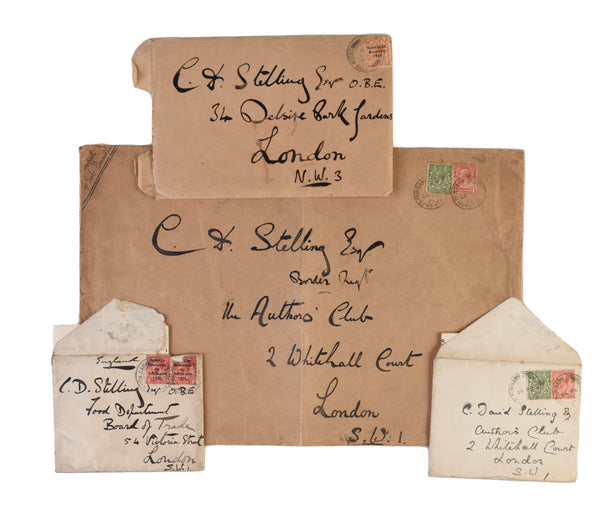 C. D. Stelling Esqr O.B.E.
34 Belsize Park Gardens
London
N.W.3
C. D. Stelling Esqr
Border Regt
The Authors' Club
2 Whitehall Court
London
S.W.1.
England
C.D. Stelling Esqr O.B.E
Food Department
Board of Trade
54 Victoria Street
London
S.W.1
C. David Stelling Esq
Authors Club
2 Whitehall Court
London
S.W.1